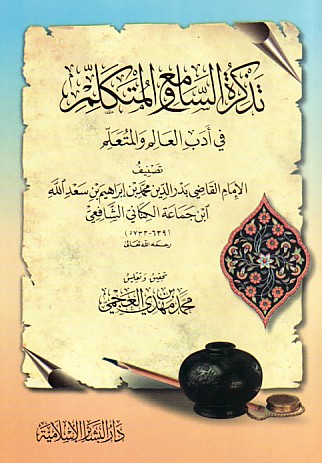 تذكرة السامع والمتكلم
في أدب العالم والمتعلم
تصنيف
الإمام القاضي بدر الدين محمد بن إبراهيم بن سعد الله
ابن جماعة الكناني الشافعي
(٦٣٩-٧٣٣ھ)
رحمه الله تعالى
تحقيق وتعليق
محمد بن مهدي العجمي
دار البشائر الإسلامية